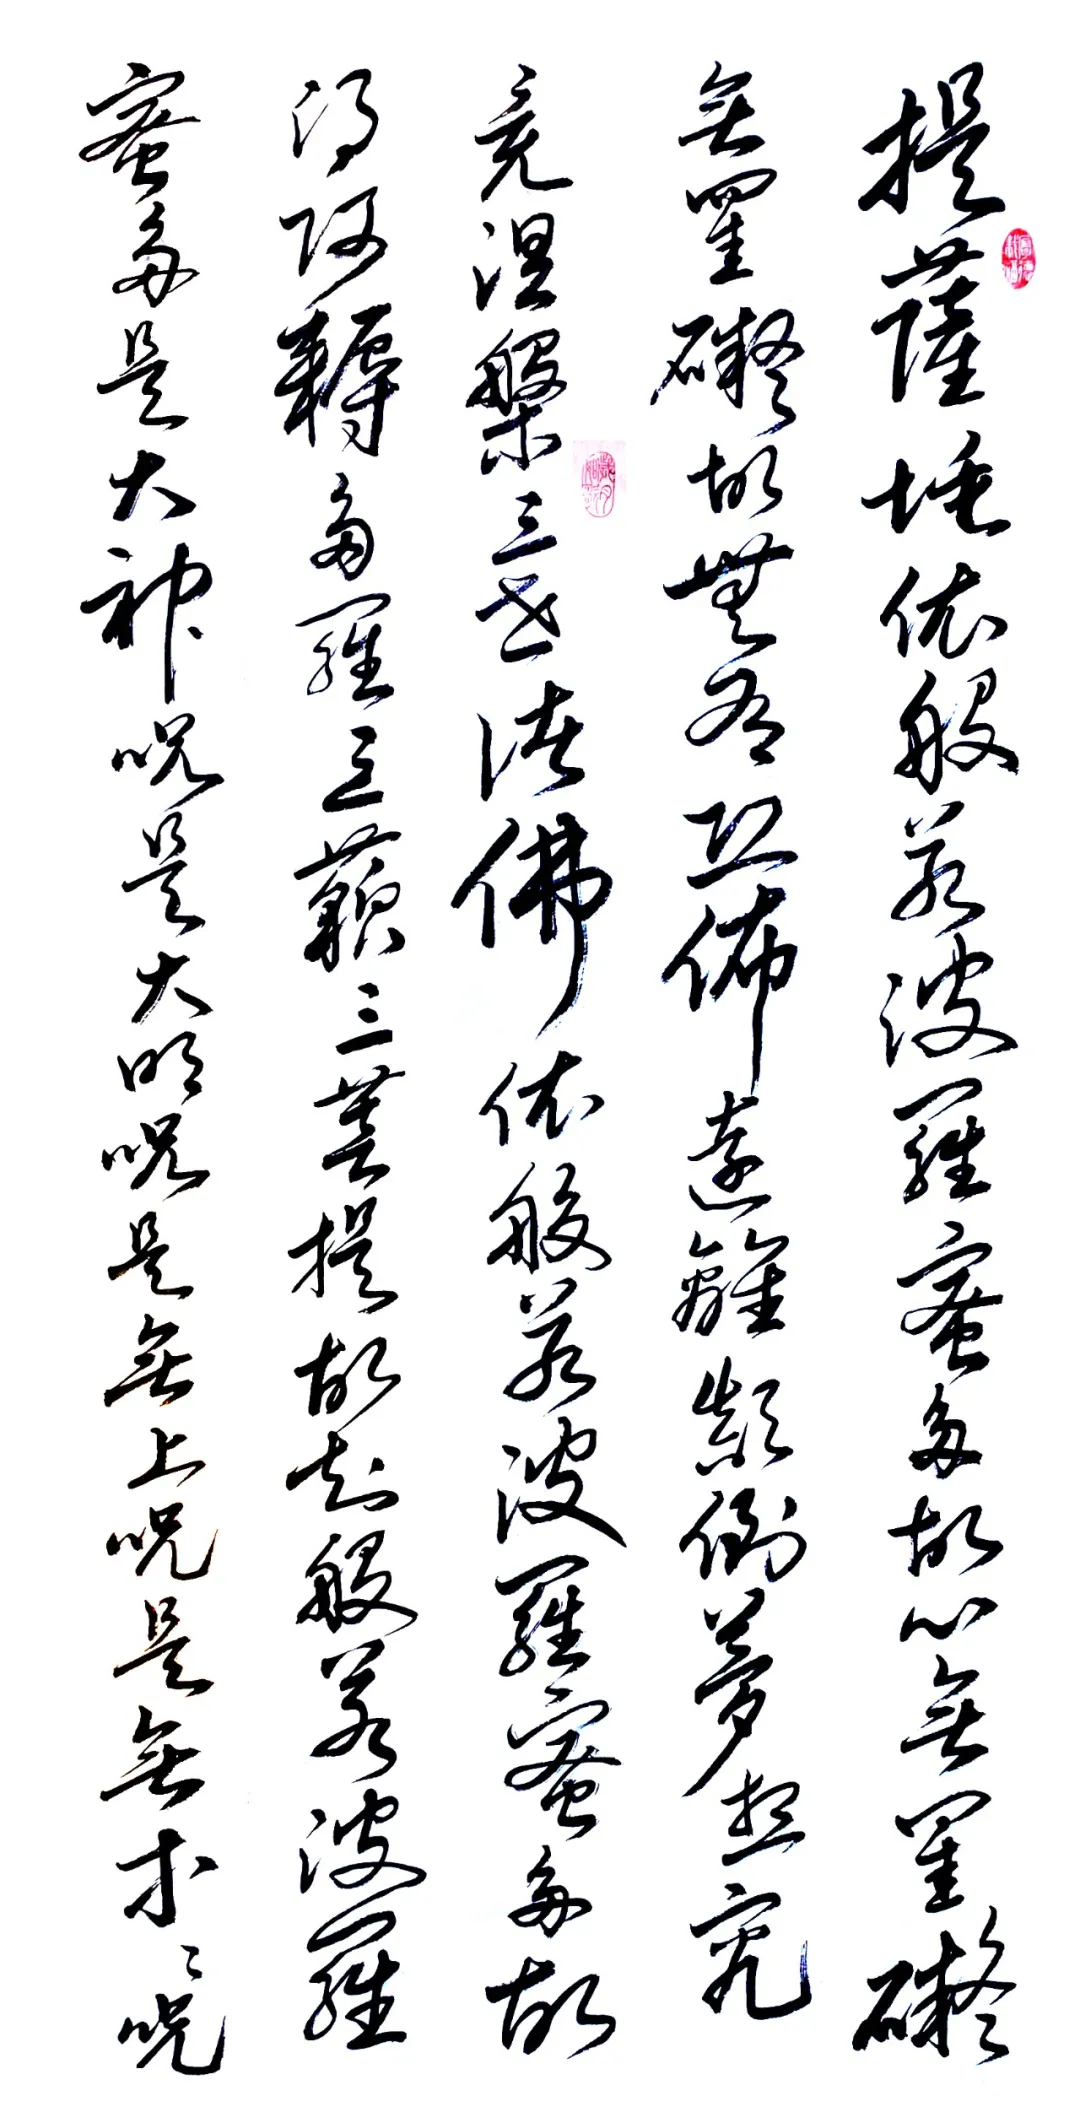 提薩埵依般若波羅蜜多故心無罣礙
無罣礙故無有恐怖遠離顛倒夢想究
竟涅槃三世諸佛依般若波羅蜜多故
得阿耨多羅三藐三菩提故知般若波羅
蜜多是大神咒是大明咒是無上咒是無等〻咒